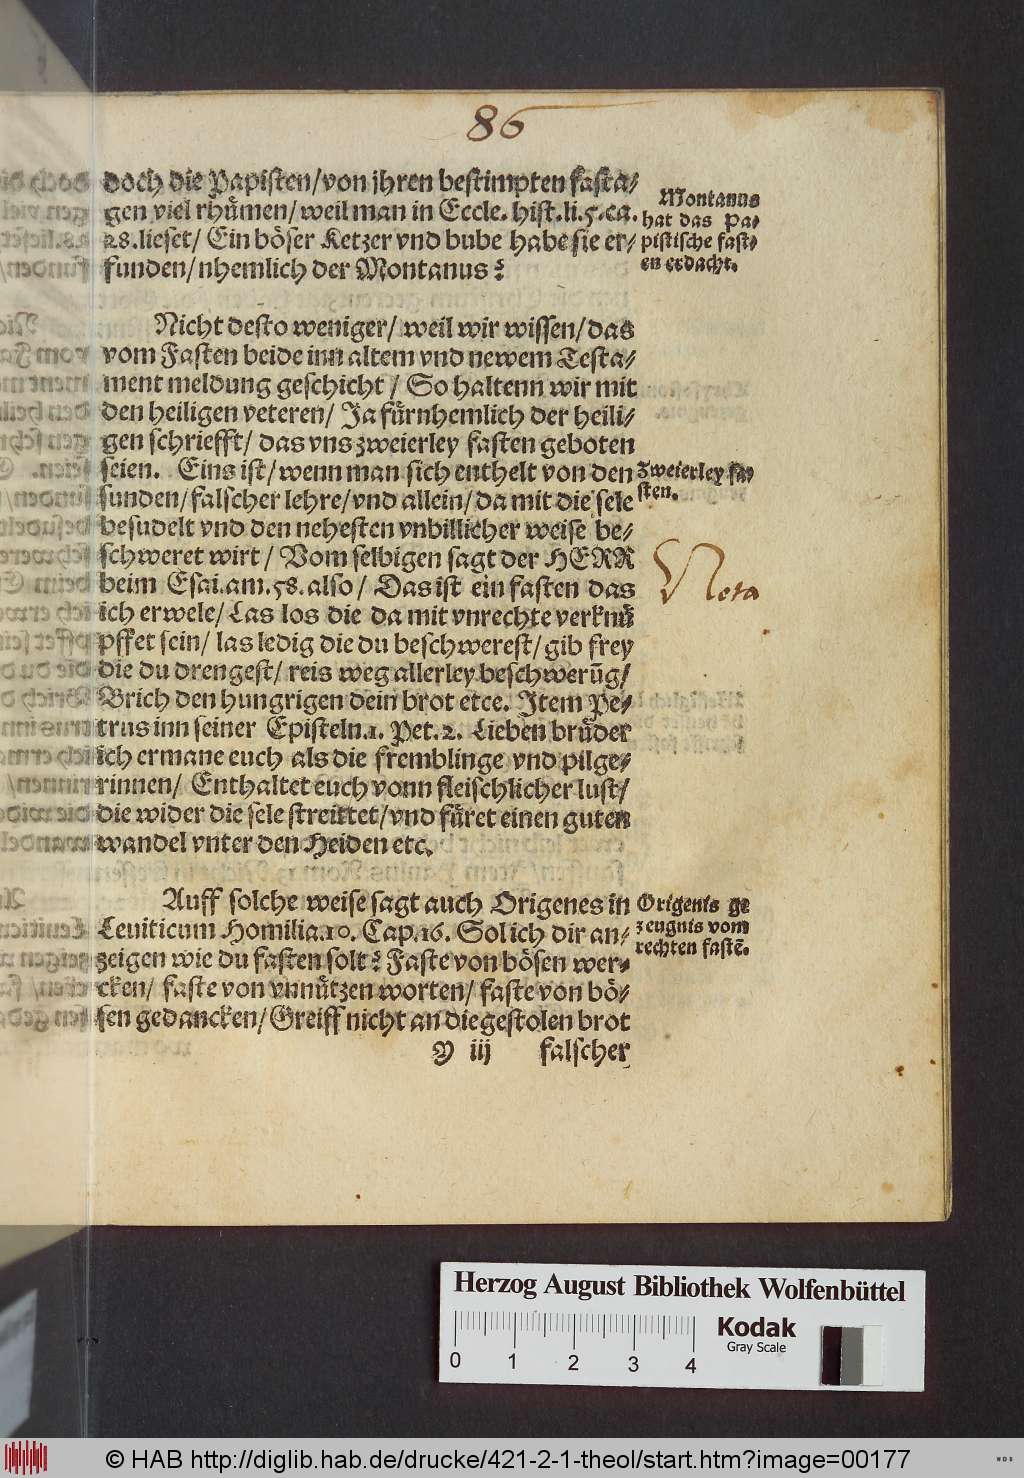 86
doch die Papisten/von jhren bestimpten fasta⸗
gen viel rhuͤmen/ weil man in Eccle. hist. li. 5. ca.
28. lieset/ Ein boͤser Ketzer vnd bube habe sie er⸗
funden/nhemlich der Montanus?
Montanus
hat das Pa⸗
pistische fast⸗
en erdacht.
Nicht desto weniger/ weil wir wissen/das
vom Fasten beide inn altem vnd newem Testa⸗
ment meldung geschicht/ So haltenn wir mit
den heiligen veteren/ Ja fuͤrnhemlich der heili⸗
gen schriefft/ das vns zweierley fasten geboten
seien. Eins ist/wenn man sich enthelt von den
sunden/falscher lehre/vnd allein/da mit die sele
besudelt vnd den nehesten vnbillicher weise be⸗
schweret wirt/ Vom selbigen sagt der HERR
beim Esai. am. 58. also/ Das ist ein fasten das
ich erwele/Las los die da mit vnrechte verknuͤ
pffet sein/ las ledig die du beschwerest/gib frey
die du drengest/ reis weg allerley beschwerūg/
Brich den hungrigen dein brot etce. Item Pe⸗
trus inn seiner Episteln. 1. Pet. 2. Lieben bruͤder
ich ermane euch als die fremblinge vnd pilge⸗
rinnen/ Enthaltet euch vonn fleischlicher lust/
die wider die sele streittet/vnd fuͤret einen guten
wandel vnter den Heiden etc.
Zweierley fa⸗
sten.
Nota
Auff solche weise sagt auch Origenes in
Leuiticum Homilia. 10. Cap. 16. Sol ich dir an⸗
zeigen wie du fasten solt? Faste von boͤsen wer⸗
cken/ faste von vnnuͤtzen worten/ faste von boͤ⸗
sen gedancken/Greiff nicht an die gestolen brot
Origenis ge
zeugnis vom
rechten fastē.
Y iij falscher
Herzog August Bibliothek Wolfenbüttel
0 1 2 3 4
Kodak
Gray Scale
© HAB http://diglib.hab.de/drucke/421-2-1-theol/start.htm?image=00177
WDB